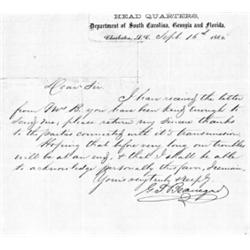 HEAD QUARTERS,
Department of South Carolina, Georgia and Florida.
Charleston, S.C. Sept. 16th 186
Dear Sir
I have received the letter
from Mr R. you have been kind enough to
send me; please return my sincere thanks
to the parties connected with it's transmission.
Hoping that before very long our troubles
will be at an end, & that I shall be able
to acknowledge personally this favor, I remain
Yours very truly & resp.
G. T. Beauregard